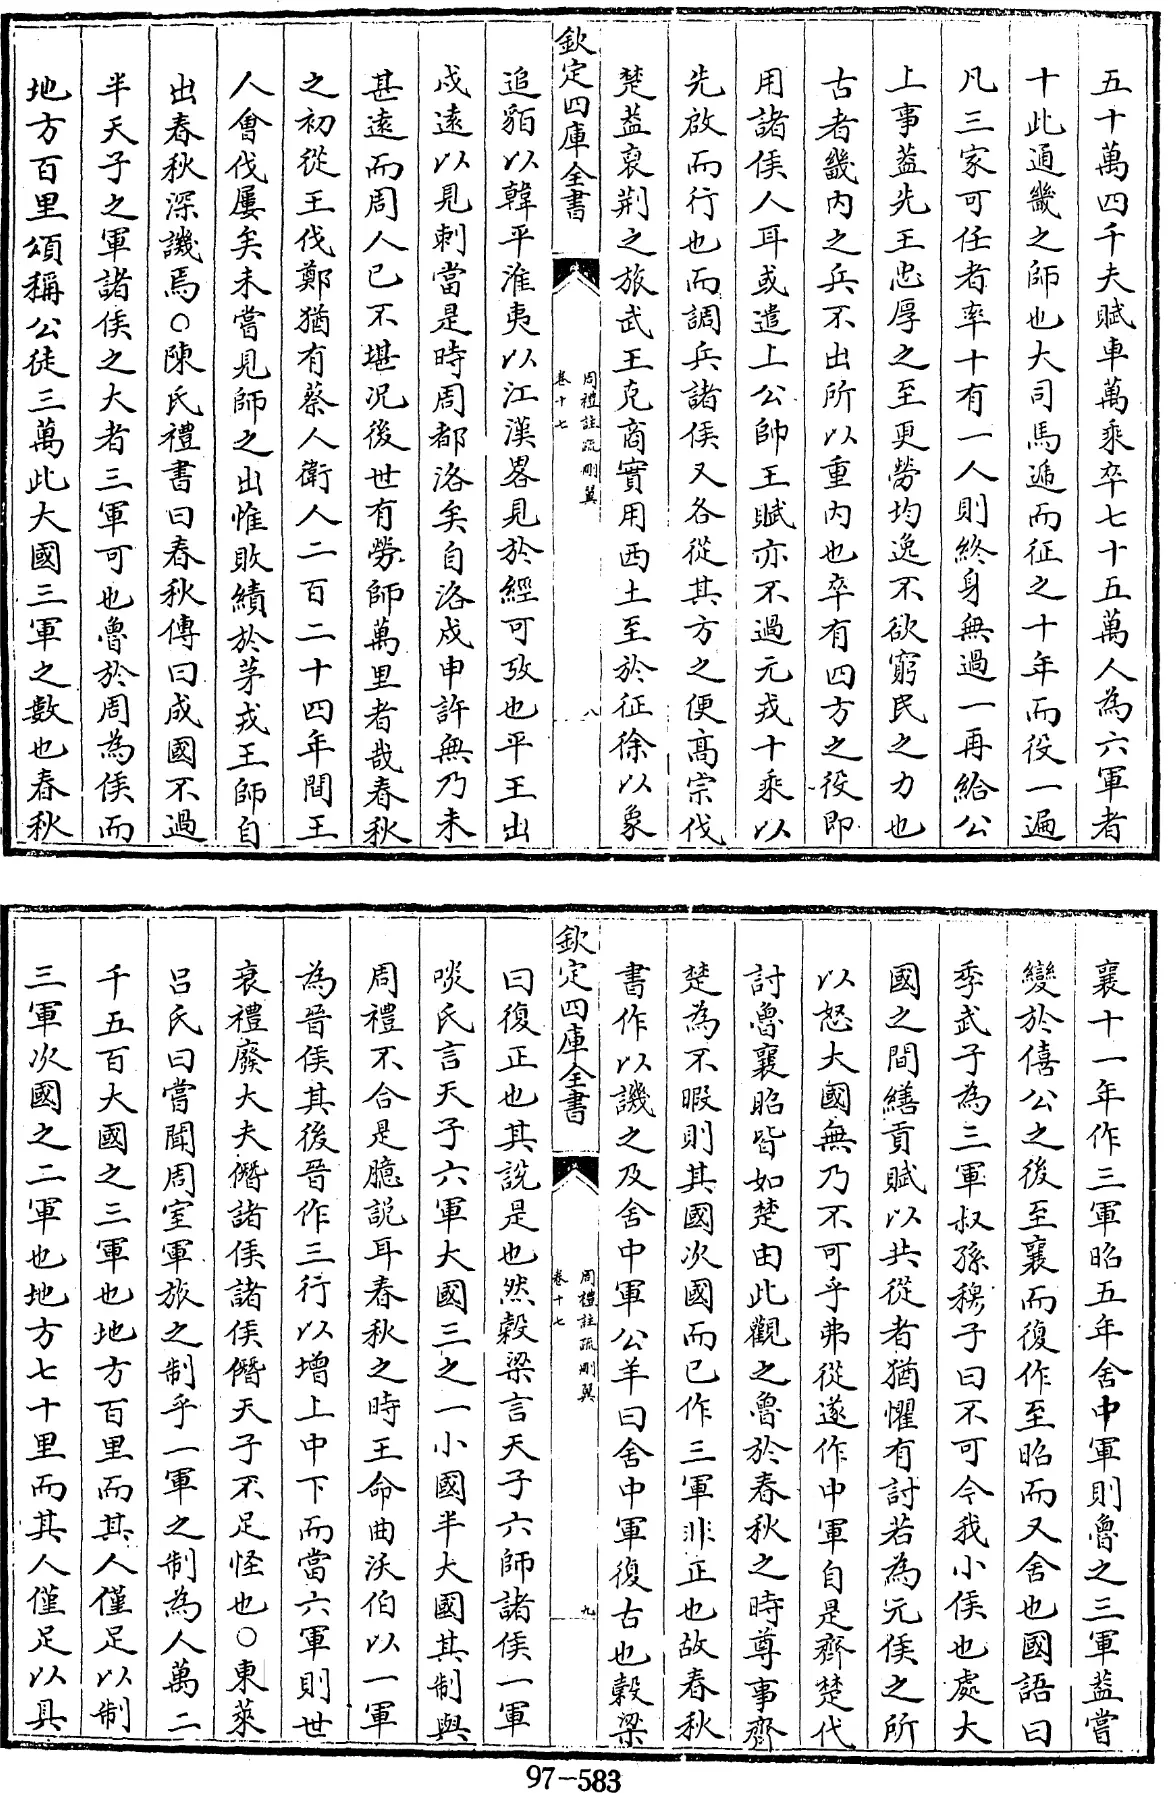 五十萬四千夫賦車萬乘卒七十五萬人為六軍者
十此通畿之師也大司馬遞而征之十年而役一遍
凡三家可任者率十有一人則終身無過一再給公
上事葢先王忠厚之至更勞均逸不欲窮民之力也
古者畿內之兵不出所以重內也卒有四方之役即
用諸侯人耳或遣上公帥王賦亦不過元戎十乘以
先啟而行也而調兵諸侯又各從其方之便髙宗伐
楚葢裒荆之旅武王克商實用西土至於征徐以象
欽定四庫全書
周禮註疏刪翼
卷十七
八
追貊以韓平淮夷以江漢畧見於經可攷也平王出
戍逺以見刺當是時周都洛矣自洛戍申許無乃未
甚逺而周人已不堪况後世有勞師萬里者哉春秋
之初從王伐鄭猶有蔡人衛人二百二十四年間王
人會伐屢矣未嘗見師之出惟敗績於茅戎王師自
出春秋深譏焉○陳氏禮書曰春秋傳曰成國不過
半天子之軍諸侯之大者三軍可也魯於周為侯而
地方百里頌稱公徒三萬此大國三軍之數也春秋
襄十一年作三軍昭五年舍中軍則魯之三軍葢嘗
變於僖公之後至襄而復作至昭而又舍也國語曰
季武子為三軍叔孫穆子曰不可今我小侯也處大
國之間繕貢賦以共從者猶懼有討若為元侯之所
以怒大國無乃不可乎弗從遂作中軍自是齊楚代
討魯襄昭皆如楚由此觀之魯於春秋之時尊事齊
楚為不暇則其國次國而已作三軍非正也故春秋
書作以譏之及舍中軍公羊曰舍中軍復古也榖梁
欽定四庫全書
周禮註疏刪翼
卷十七
九
曰復正也其說是也然榖梁言天子六師諸侯一軍
啖氏言天子六軍大國三之一小國半大國其制與
周禮不合是臆說耳春秋之時王命曲沃伯以一軍
為晉侯其後晉作三行以增上中下而當六軍則世
衰禮廢大夫僭諸侯諸侯僭天子不足怪也○東萊
呂氏曰嘗聞周室軍旅之制乎一軍之制為人萬二
千五百大國之三軍也地方百里而其人僅足以制
三軍次國之二軍也地方七十里而其人僅足以具
97-583